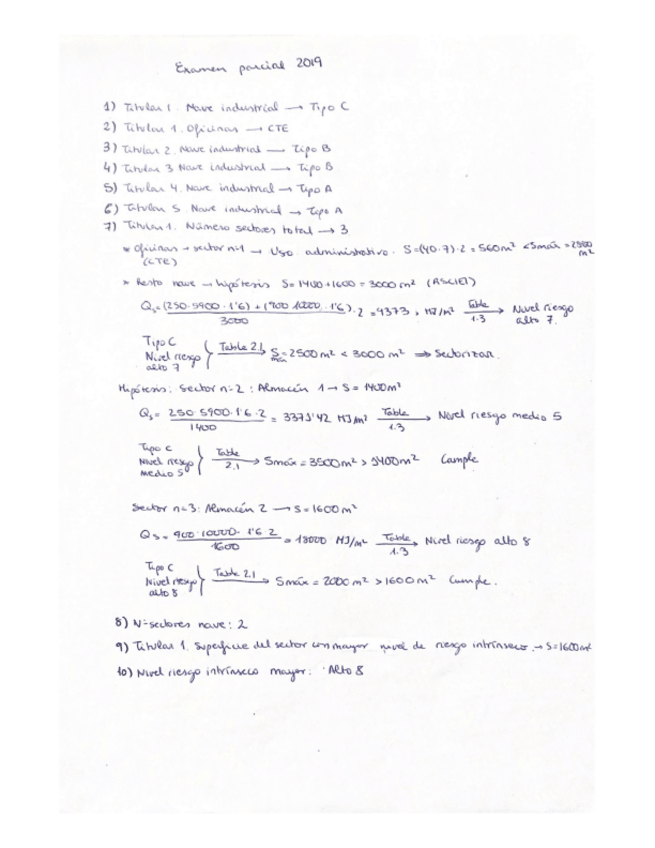 Examen parcial 2019
1) Titular 1. Nave industrial → Tipo C
2) Titular 1. Oficinas → CTE
3) Titular 2. Nave industrial → Tipo B
4) Titular 3 Nave industrial → Tipo B
5) Titular 4. Nave industrial → Tipo A
6) Titular 5. Nave industrial → Tipo A
7) Titular 1. Número sectores total → 3
* Oficinas → sector nº1 → Uso administrativo. S=(40·7)·2 = 560m² < Smáx = 2500 m²
(CTE)
* Resto nave → hipótesis S= 1400+1600 = 3000 m² (RSCIEI)
Qs = (250·5900·1'6) + (900·10000·1'6) · 2 = 9373, MJ/m² Tabla 1.3 → Nivel riesgo alto 7.
3000
Tipo C
Nivel riesgo alto 7 } Tabla 2.1 → Smáx = 2500 m² < 3000 m² ⇒ Sectorizar.
Hipótesis: Sector n=2: Almacén 1 → S = 1400m²
Qs = 250·5900·1'6·2 = 3371'42 MJ/m² Tabla 1.3 → Nivel riesgo medio 5
1400
Tipo C
Nivel riesgo medio 5 } Tabla 2.1 → Smáx = 3500m² > 1400m² Cumple
Sector n=3: Almacén 2 → S = 1600 m²
Qs = 900·10000·1'6·2 = 18000 MJ/m² Tabla 1.3 → Nivel riesgo alto 8
1600
Tipo C
Nivel riesgo alto 8 } Tabla 2.1 → Smáx = 2000 m² > 1600 m² Cumple.
8) Nº sectores nave: 2
9) Titular 1. Superficie del sector con mayor nivel de riesgo intrínseco. → S=1600m²
10) Nivel riesgo intrínseco mayor: Alto 8